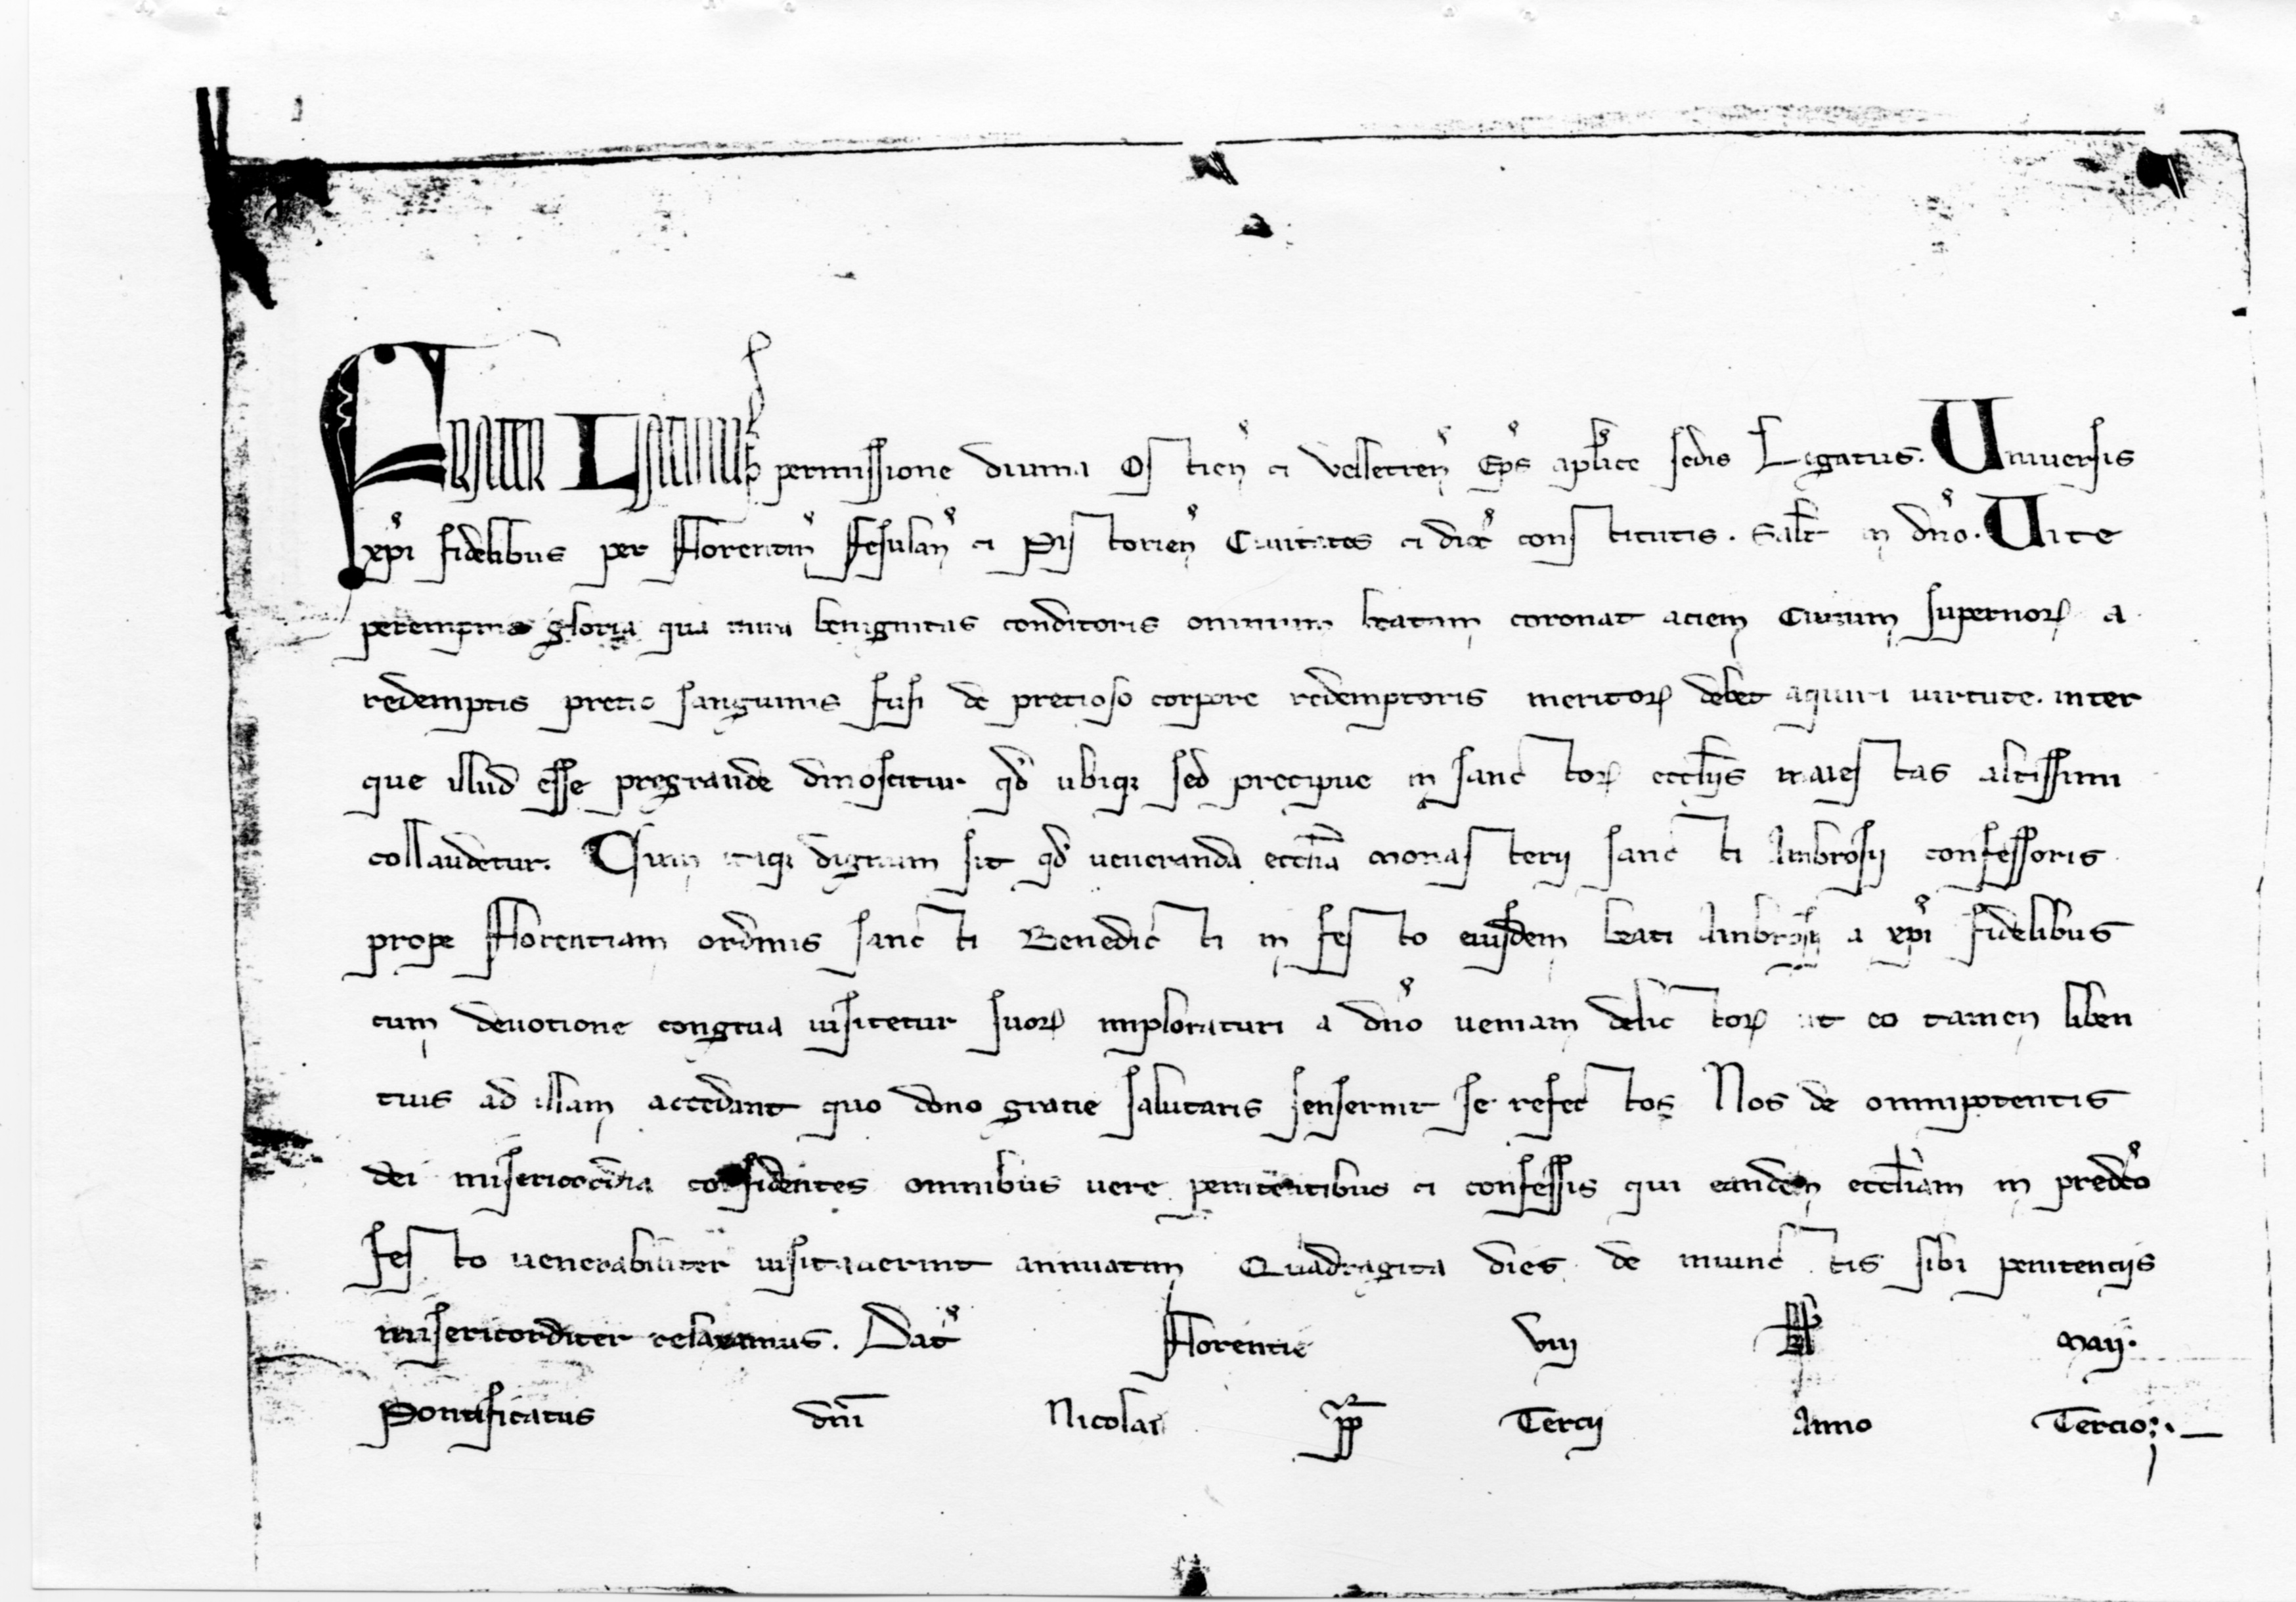 Frater Latinus permissione diuina Ostien̄ et Velletren̄ Ep̄s ap̄lice sedis Legatus. Uniuersis
xp̄i fidelibus per Florentin̄ Fesulan̄ et Pistorien̄ Ciuitates et dioc̄ constitutis. Salt̄ in dn̄o. Uite
perempnis gloria qua mira benignitas conditoris omnium beatam coronat aciem Ciuium supernoꝝ a
redemptis pretio sanguinis fusi de pretioso corpore redemptoris meritoꝝ debet aquiri uirtute. inter
que illud esse pregrande dinoscitur qd̄ ubiqꝫ sed precipue in sanctoꝝ eccl̄iis maiestas altissimi
collaudetur. Cum itaqꝫ dignum sit qd̄ ueneranda eccl̄ia monasterij sancti Ambrosij confessoris
prope Florentiam ordinis sancti Benedicti in festo eiusdem beati Ambrosij a xp̄i fidelibus
cum deuotione congrua uisitetur suoꝝ imploraturi a dn̄o ueniam delictoꝝ ut eo tamen liben
tius ad illam accedant quo dono gratie salutaris senserint se refectos Nos de omnipotentis
dei misericordia confidentes omnibus uere penitentibus et confessis qui eandem eccl̄iam in predc̄o
festo uenerabiliter uisitauerint annuatim Quadragita dies de iniunctis sibi penitencijs
misericorditer relaxamus. Dat̄ Florentie viij kl̄ maij.
Pontificatus dn̄i Nicolai pp̄ Tercij Anno Tercio